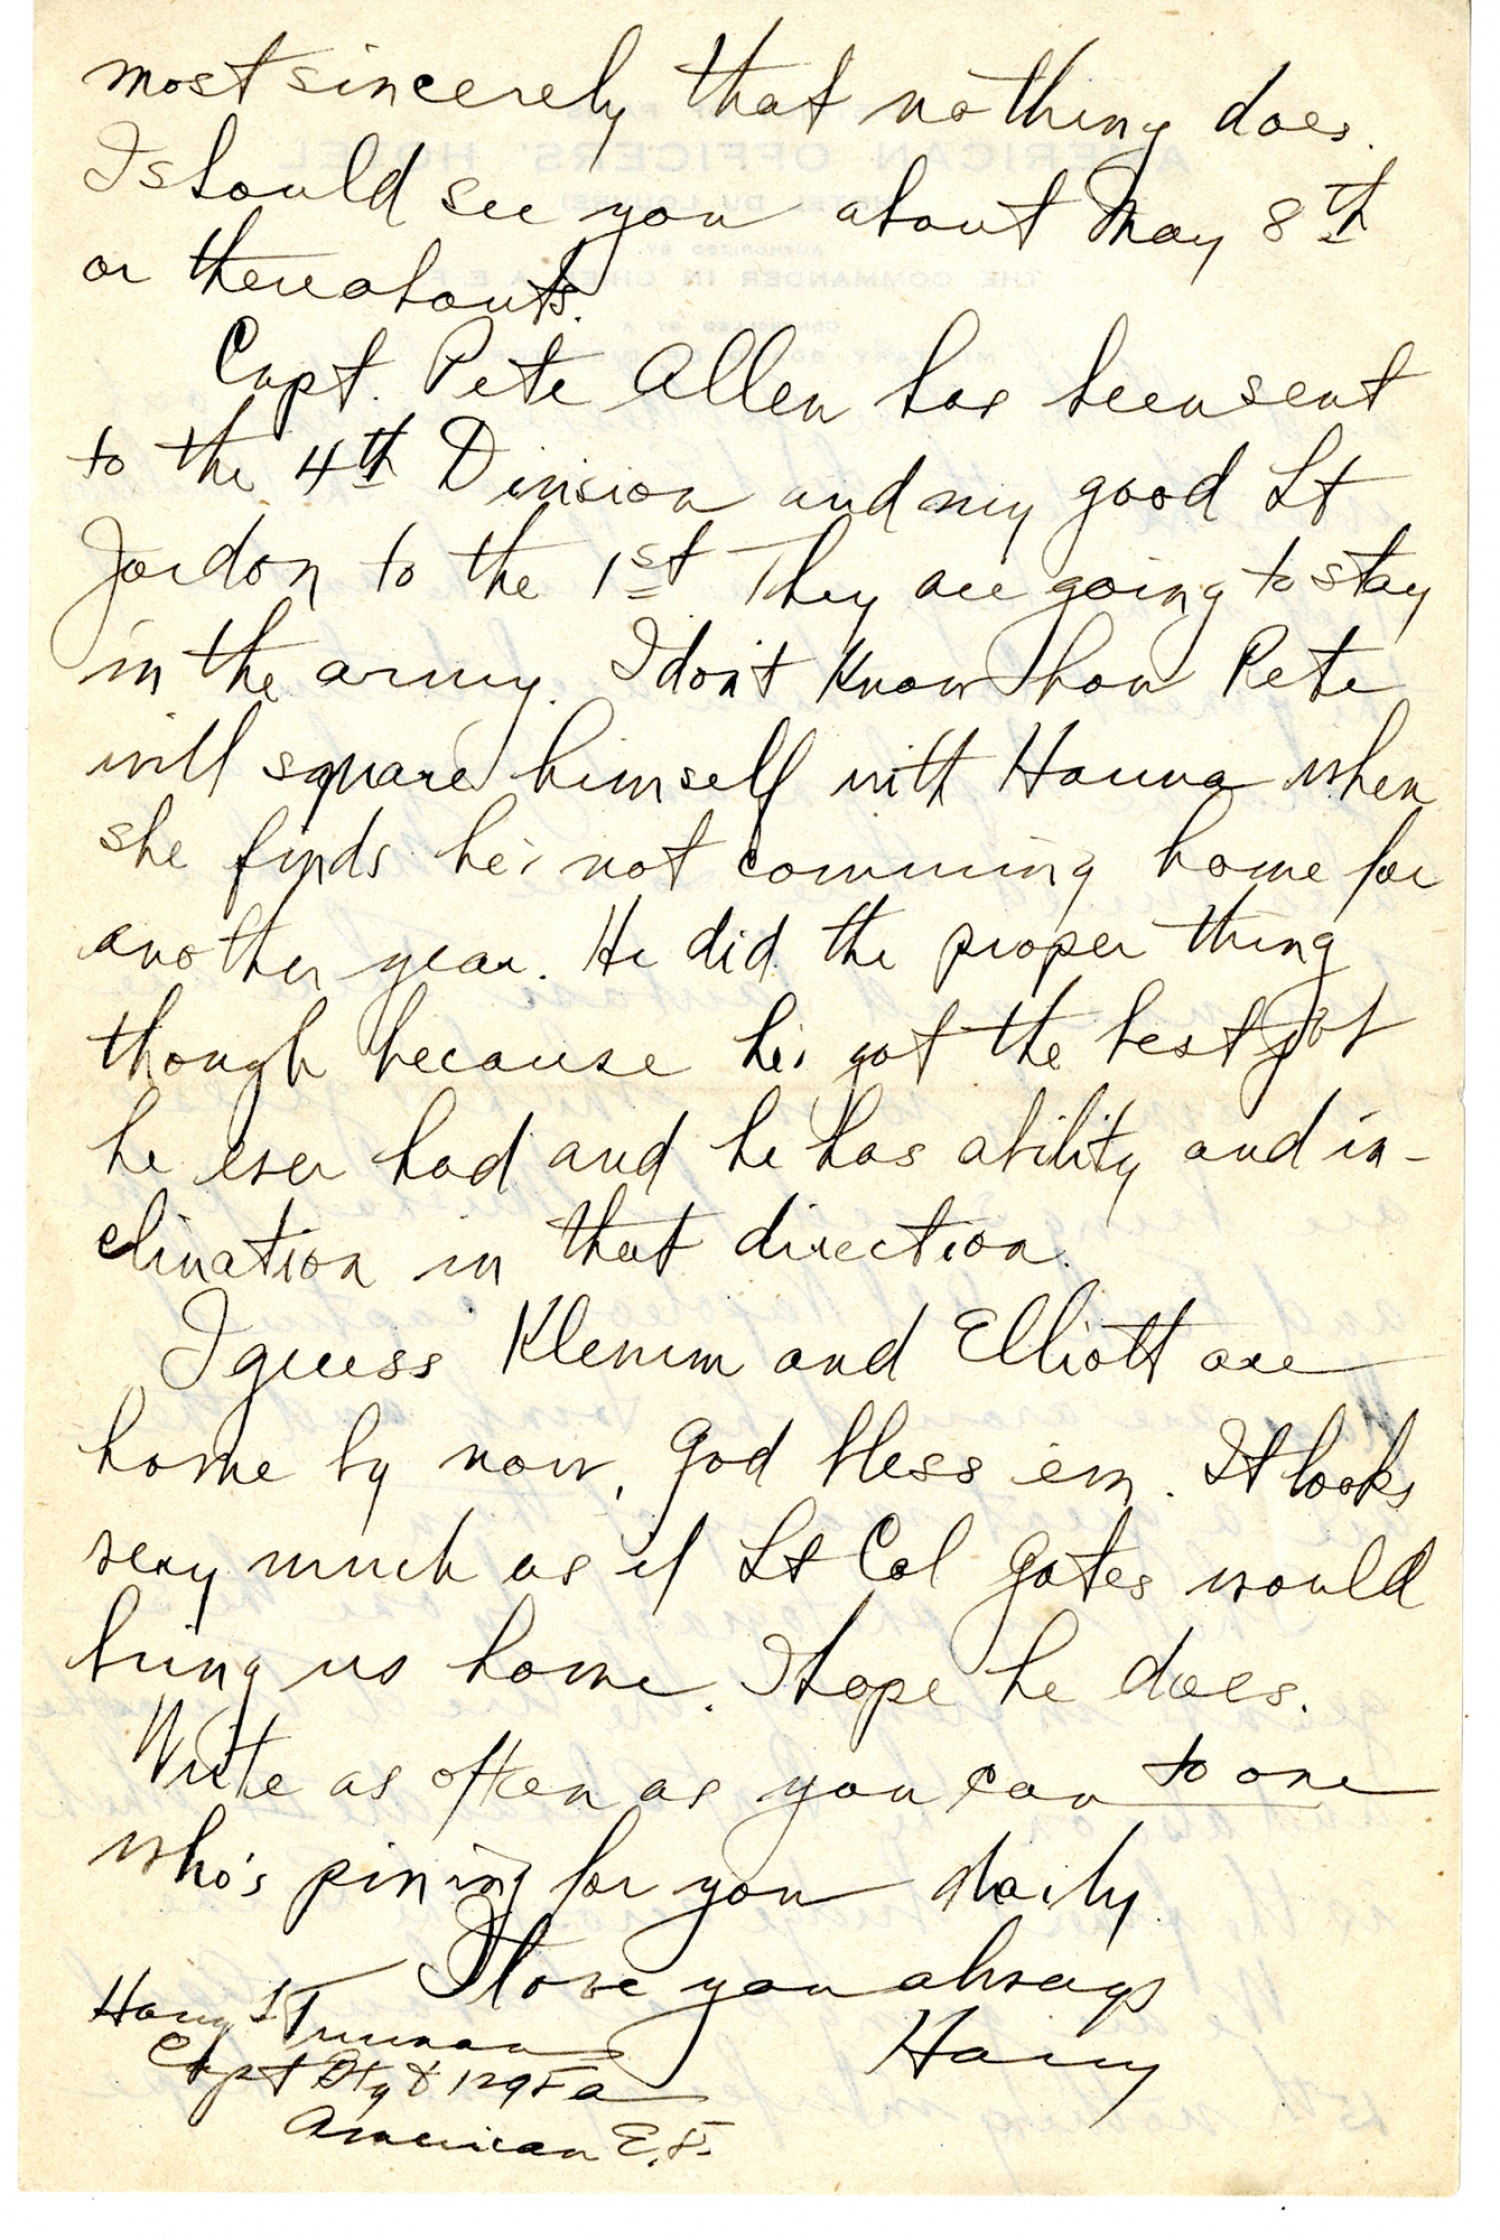 most sincerely that nothing does.
I should see you about May 8th
or thereabouts.
Capt. Pete Allen has been sent
to the 4th Division and my good Lt
Jordon to the 1st They are going to stay
in the army. I don't know how Pete
will square himself with Hanna when
she finds he's not comming home for
another year. He did the proper thing
though because he's got the best job
he ever had and he has ability and in-
clination in that direction.
I guess Klemm and Elliott are
home by now, God bless em. It looks
very much as if Lt Col Gates would
bring us home. I hope he does.
Write as often as you can to one
who's pining for you daily.
I love you always
Harry
Harry S Truman
Capt Bty D 129 F A
American E.F.
AMERICAN OFFICERS' HOTEL
(HOTEL DU LOUVRE)
AUTHORIZED BY
THE COMMANDER IN CHIEF, A. E. F.
CONTROLLED BY A